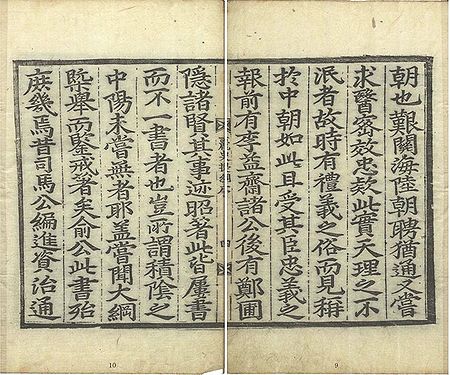 朝也艱關海陸朝聘猶通又嘗
求醫密效忠款此實天理之不
泯者故時有禮義之俗而見稱
於中朝如此且受其臣忠義之
報前有李益齋諸公後有鄭圃
隱諸賢其事迹昭著此皆屢書
而不一書者也豈所謂積陰之
中陽未嘗無者耶蓋嘗聞大綱
槩舉而鑒戒著矣兪公此書殆
庶幾焉昔司馬公編進資治通
9
10